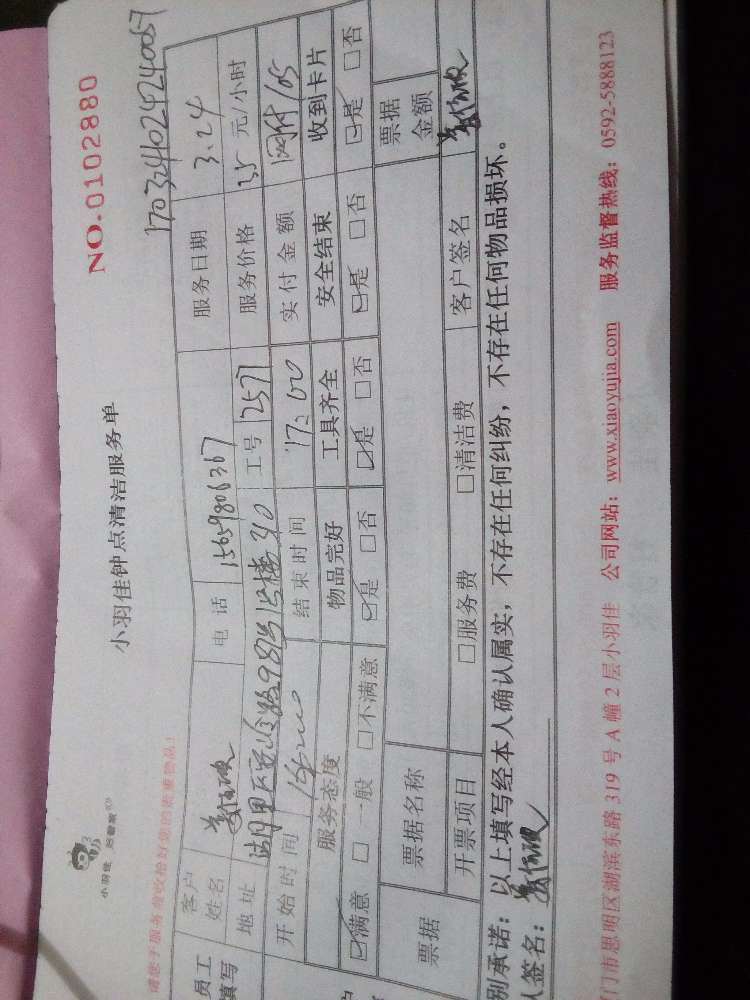 小羽佳 的管家
小羽佳钟点清洁服务单
NO.0102880
请您于服务前收拾好您的贵重物品！
170324102424240057
员工填写
客户姓名
电 话 15659806367
服务日期 3.24
地址
工号 2571
服务价格 35 元/小时
开始时间 14:00
结束时间 17:00
实付金额 105
服务态度 物品完好 工具齐全 安全结束 收到卡片
☑满意 □一般 □不满意 ☑是 □否 ☑是 □否 ☑是 □否 ☑是 □否
票据 票据名称 票据金额
开票项目 □服务费 □清洁费 客户签名
别承诺：以上填写经本人确认属实，不存在任何纠纷，不存在任何物品损坏。
人签名：
门市思明区湖滨东路 319 号 A 幢 2 层小羽佳 公司网站：www.xiaoyujia.com 服务监督热线：0592-5888123